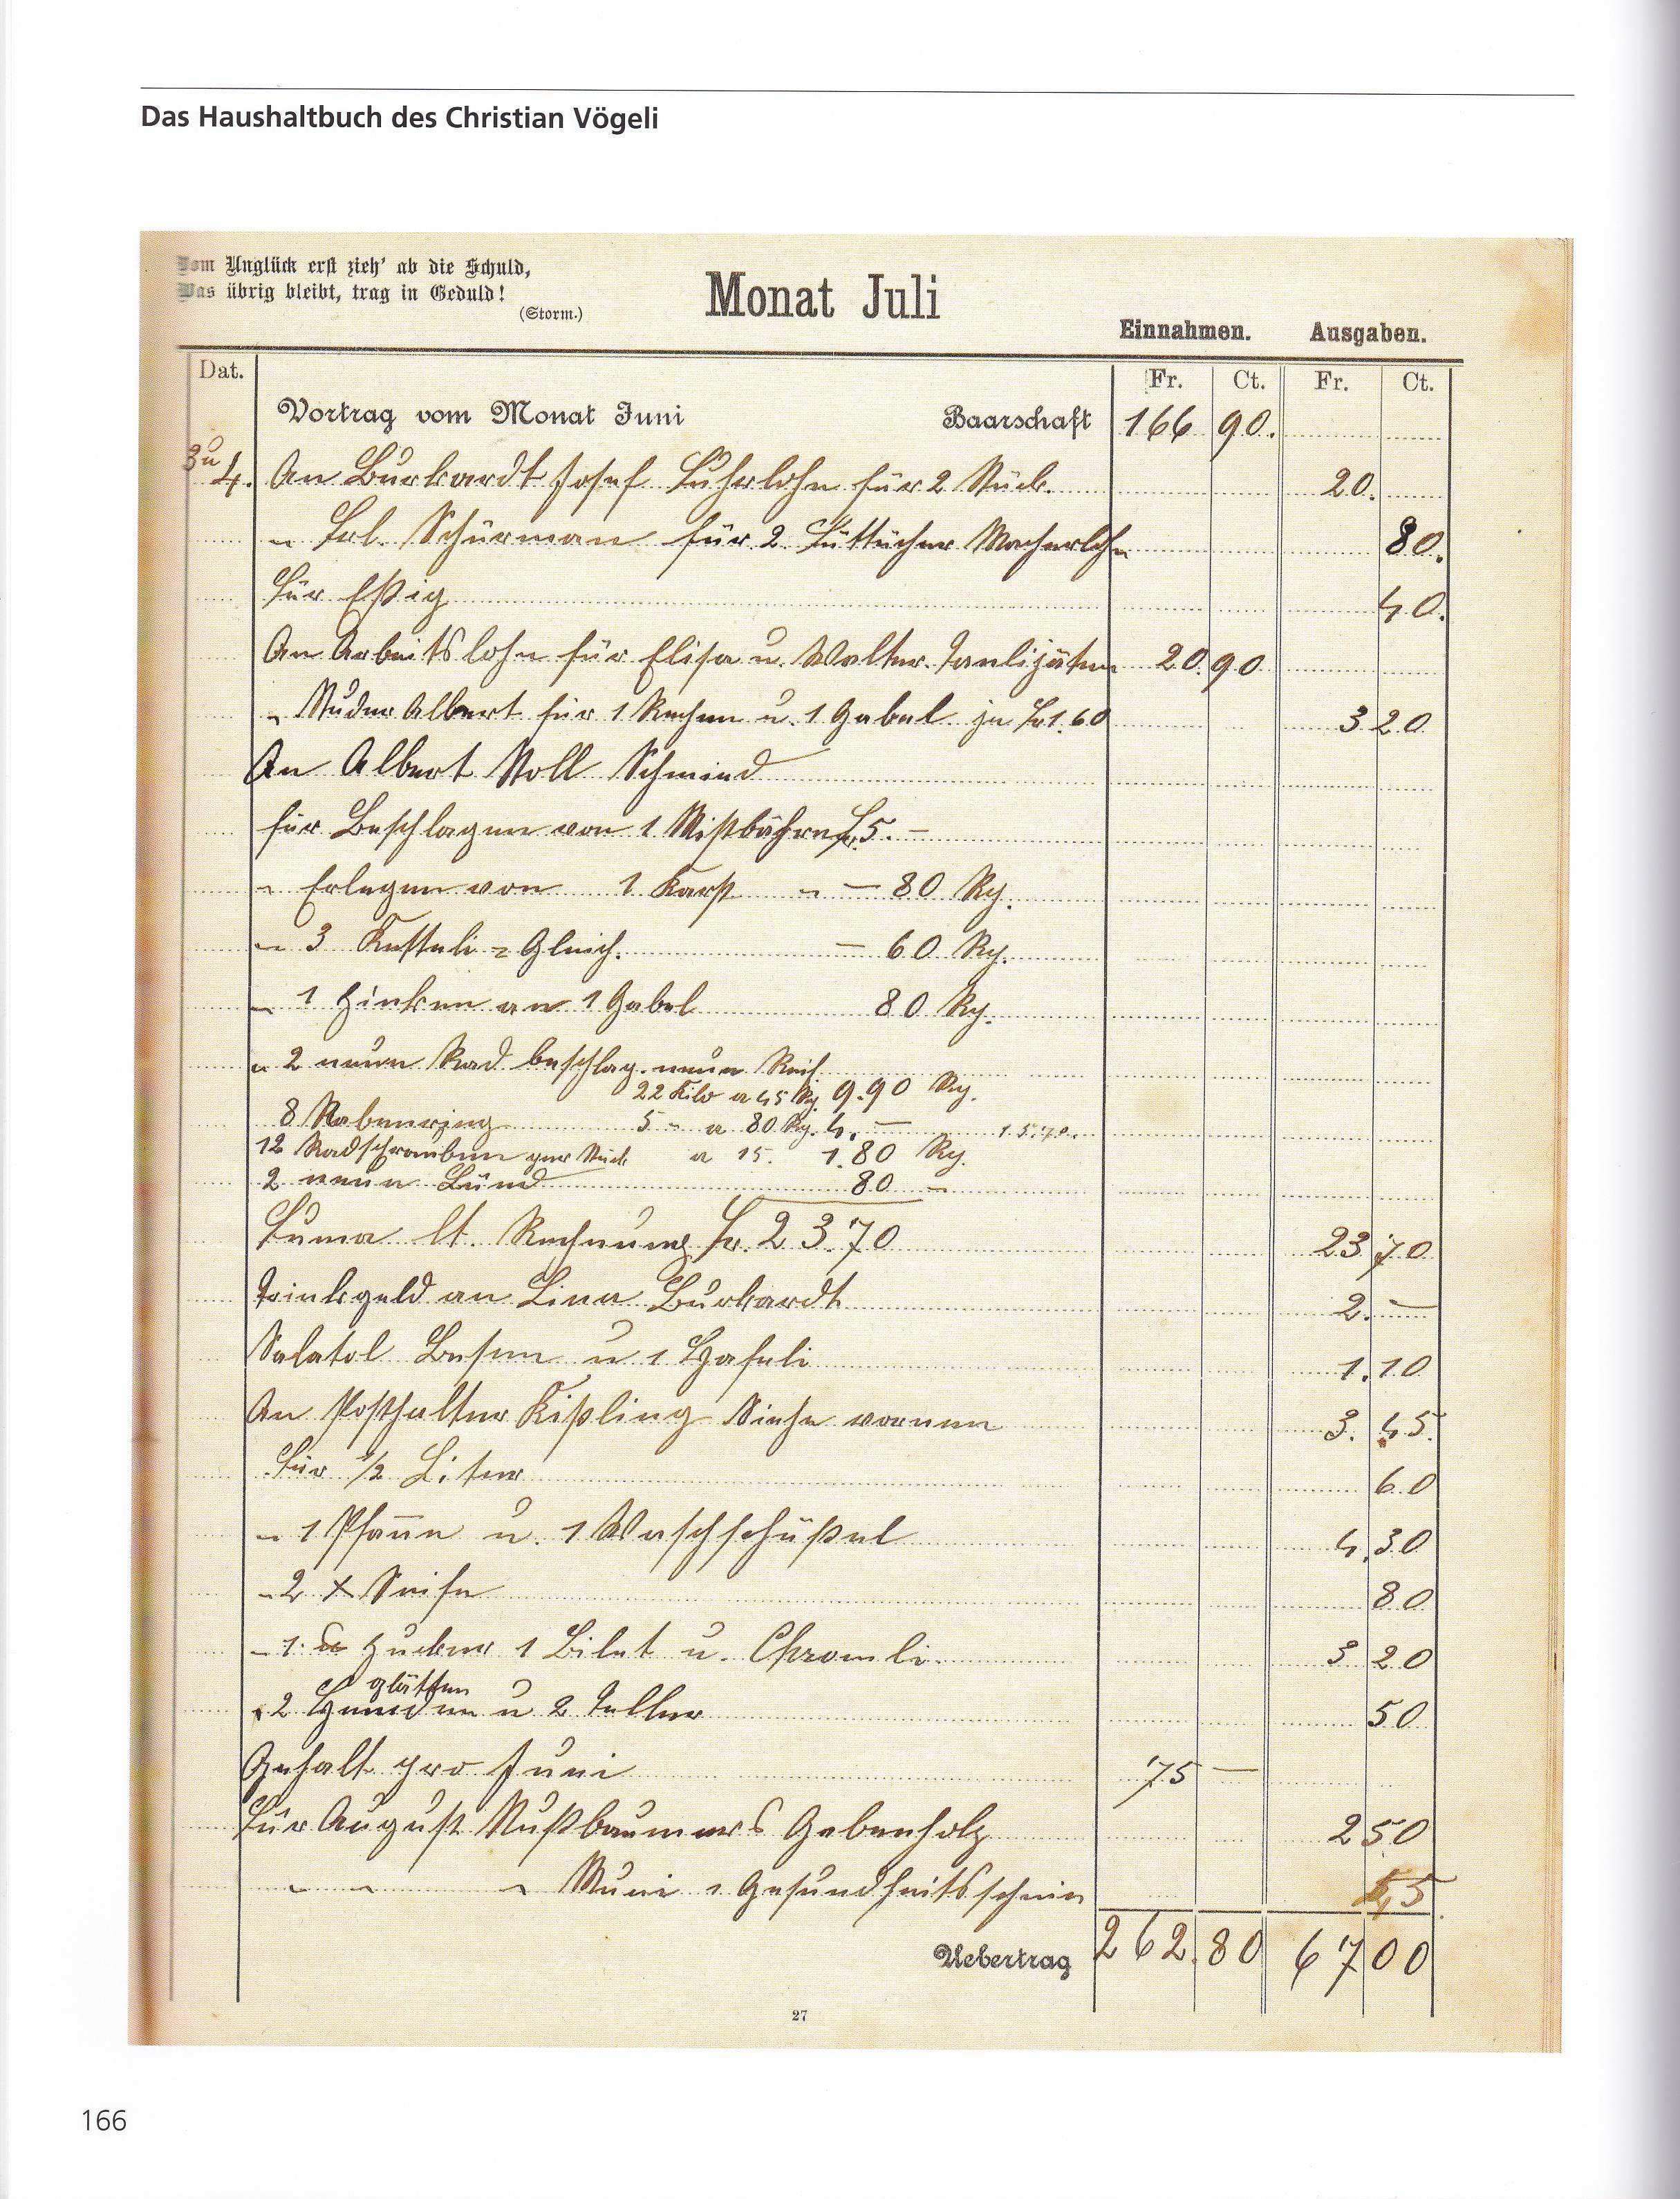 Das Haushaltbuch des Christian Vögeli
Vom Unglück erst zieh' ab die Schuld,
Was übrig bleibt, trag in Geduld!
(Storm.)
Monat Juli
Einnahmen. Ausgaben.
Dat. Fr. Ct. Fr. Ct.
Vortrag vom Monat Juni Baarschaft 166 90.
3 u 4. An Burkardt Josef Fuhrlohn für 2 Stück. 20.
" Frl. Schürman für 2 Macherlohn 80.
Für Eßig 40.
An Arbeitslohn für Elisa u. Walter. Tanlijäten 20. 90
" Studer Albert für 1 Rechen u. 1 Gabel je Fr 1.60 3 20
An Albert Stoll Schmied
für Beschlagen von 1 Mistbähre Fr. 5. –
" Erlegen von 1 Karst " – 80 Rp.
" 3 Ketteli = Gleich. – 60 Rp.
" 1 Zinken an 1 Gabel 80 Rp.
" 2 neue Rad beschlag. neue Reif
22 Kilo a 45 Rp. 9.90 Rp.
8 Nabenring 5 " a 80 Rp. 4. – 15.70.
12 Radschrauben per Stück a 15. 1.80 Rp.
2 neue 80 –
Suma lt. Rechnung Fr. 23.70 23 70
Trinkgeld an Lina Burkardt 2. –
Salatöl Besen u 1 Hafeli 1. 10
An Posthalter Kißling Siehe vornen 3. 45.
Für 1/2 Liter 60
" 1 Pfanne u. 1 Waschschüßel 4. 30
" 2 x Seife 80
" 1 Zucker 1 Bilet u. Chromli. 3 20
glätten
" 2 Hemden u 2 Teller 50
Gehalt pro Juni 75 –
Für August Nußbaumers Gabenholz 2 50
" " " Muni = Gesundheitsschein 45
Uebertrag 262. 80 67 00
27
166